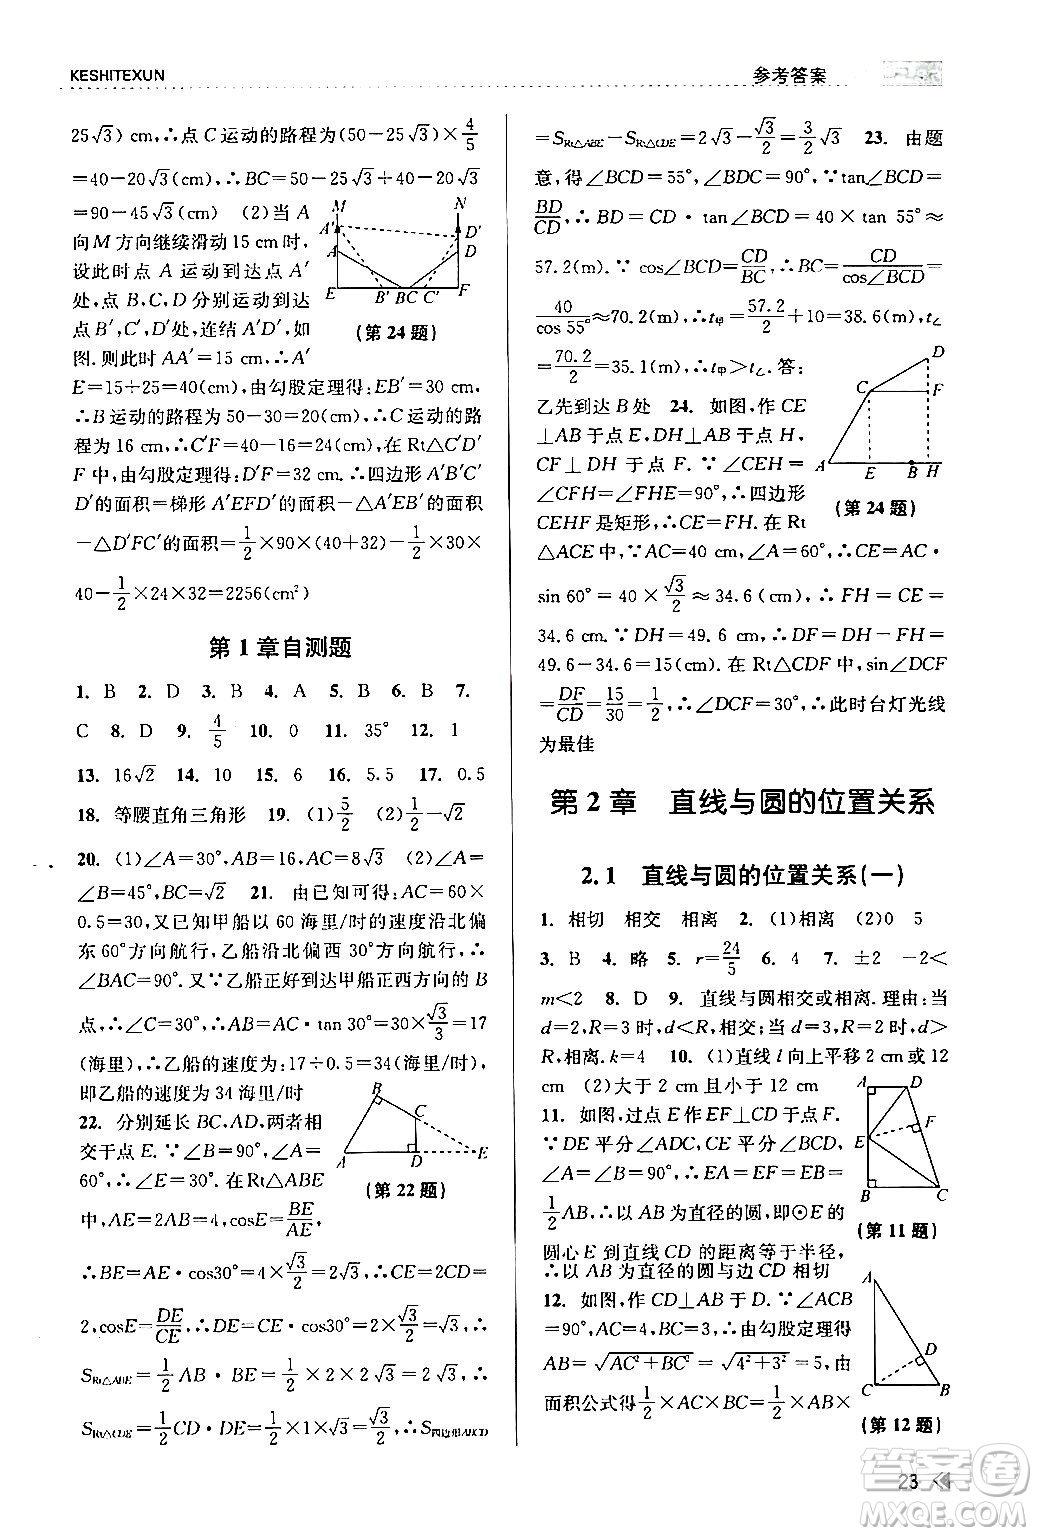 KESHITEXUN
参考答案
25√3) cm,∴点 C 运动的路程为(50－25√3)×4/5
＝40－20√3(cm),∴BC＝50－25√3＋40－20√3
＝90－45√3(cm)　(2)当 A
向 M 方向继续滑动 15 cm 时,
设此时点 A 运动到达点 A′
处,点 B,C,D 分别运动到达
点 B′,C′,D′处,连结 A′D′,如
图.则 AA′＝15 cm,∴A′
E＝15＋25＝40(cm),由勾股定理得:EB′＝30 cm,
∴B 运动的路程为 50－30＝20(cm),∴C 运动的路
程为 16 cm,∴C′F＝40－16＝24(cm),在 Rt△C′D′
F 中,由勾股定理得:D′F＝32 cm,∴四边形 A′B′C′
D′的面积＝梯形 A′EFD′的面积－△A′EB′的面积
－△D′FC′的面积＝1/2×90×(40＋32)－1/2×30×
40－1/2×24×32＝2256(cm²)
M N A′ D′ A D E B′ B C C′ F
(第 24 题)
第 1 章自测题
1. B　2. D　3. B　4. A　5. B　6. B　7.
C　8. D　9. 4/5　10. 0　11. 35°　12. 1
13. 16√2　14. 10　15. 6　16. 5.5　17. 0.5
18. 等腰直角三角形　19. (1)5/2　(2)1/2－√2
20. (1)∠A＝30°,AB＝16,AC＝8√3　(2)∠A＝
∠B＝45°,BC＝√2　21. 由已知可得:AC＝60×
0.5＝30(海里),又已知甲船以 60 海里/时的速度沿北偏
东 60°方向航行,乙船沿北偏西 30°方向航行,∴
∠BAC＝90°.又∵乙船正好到达甲船正西方向的 B
点,∴∠C＝30°,∴AB＝AC·tan 30°＝30×√3/3＝17
(海里).∴乙船的速度为:17÷0.5＝34(海里/时),
即乙船的速度为 34 海里/时
22. 分别延长 BC,AD,两者相
交于点 E.∵∠B＝90°,∠A＝
60°,∴∠E＝30°.在 Rt△ABE
中,AE＝2AB＝4,cosE＝BE/AE,
B C A D E
(第 22 题)
∴BE＝AE·cos30°＝4×√3/2＝2√3,∴CE＝2CD＝
2,cosE＝DE/CE,∴DE＝CE·cos30°＝2×√3/2＝√3,∴
S Rt△ABE＝1/2AB·BE＝1/2×2×2√3＝2√3,∴
S Rt△CDE＝1/2CD·DE＝1/2×1×√3＝√3/2,∴S四边形ABCD
＝S Rt△ABE－S Rt△CDE＝2√3－√3/2＝3/2√3　23. 由题
意,得∠BCD＝55°,∠BDC＝90°,∵tan∠BCD＝
BD/CD,∴BD＝CD·tan∠BCD＝40×tan 55°≈
57.2(m).∵cos∠BCD＝CD/BC,∴BC＝CD/cos∠BCD＝
40/cos 55°≈70.2(m),∴t甲＝57.2/2＋10＝38.6(m),t乙
＝70.2/2＝35.1(m),∴t甲＞t乙.答:
乙先到达 B 处　24. 如图,作 CE
⊥AB 于点 E,DH⊥AB 于点 H,
CF⊥DH 于点 F.∵∠CEH＝
∠CFH＝∠FHE＝90°,∴四边形
CEHF 是矩形,∴CE＝FH.在 Rt
D C F A E B H
(第 24 题)
△ACE 中,∵AC＝40 cm,∠A＝60°,∴CE＝AC·
sin 60°＝40×√3/2≈34.6(cm),∴FH＝CE＝
34.6 cm.∵DH＝49.6 cm,∴DF＝DH－FH＝
49.6－34.6＝15(cm).在 Rt△CDF 中,sin∠DCF
＝DF/CD＝15/30＝1/2,∴∠DCF＝30°,∴此时台灯光线
为最佳
第 2 章　直线与圆的位置关系
2.1　直线与圆的位置关系(一)
1. 相切　相交　相离　2. (1)相离　(2)0　5
3. B　4. 略　5. r＝24/5　6. 4　7. ±2　－2＜
m＜2　8. D　9. 直线与圆相交或相离.理由:当
d＝2,R＝3 时,d＜R,相交;当 d＝3,R＝2 时,d＞
R,相离.k＝4　10. (1)直线 l 向上平移 2 cm 或 12
cm　(2)大于 2 cm 且小于 12 cm
11. 如图,过点 E 作 EF⊥CD 于点 F.
∵DE 平分∠ADC,CE 平分∠BCD,
∠A＝∠B＝90°,∴EA＝EF＝EB＝
1/2AB,∴以 AB 为直径的圆,即⊙E 的
圆心 E 到直线 CD 的距离等于半径,
∴以 AB 为直径的圆与边 CD 相切
A D F E B C
(第 11 题)
12. 如图,作 CD⊥AB 于 D.∵∠ACB
＝90°,AC＝4,BC＝3,由勾股定理得
AB＝√AC²＋BC²＝√4²＋3²＝5,由
面积公式得1/2×AC×BC＝1/2×AB×
A D C B
(第 12 题)
23
答案圈
MXQE.COM